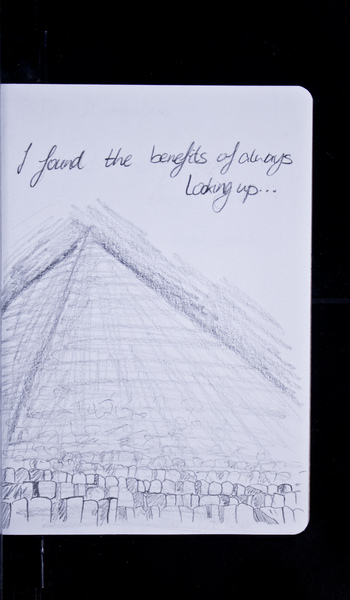 I found the benefits of always
Looking up...